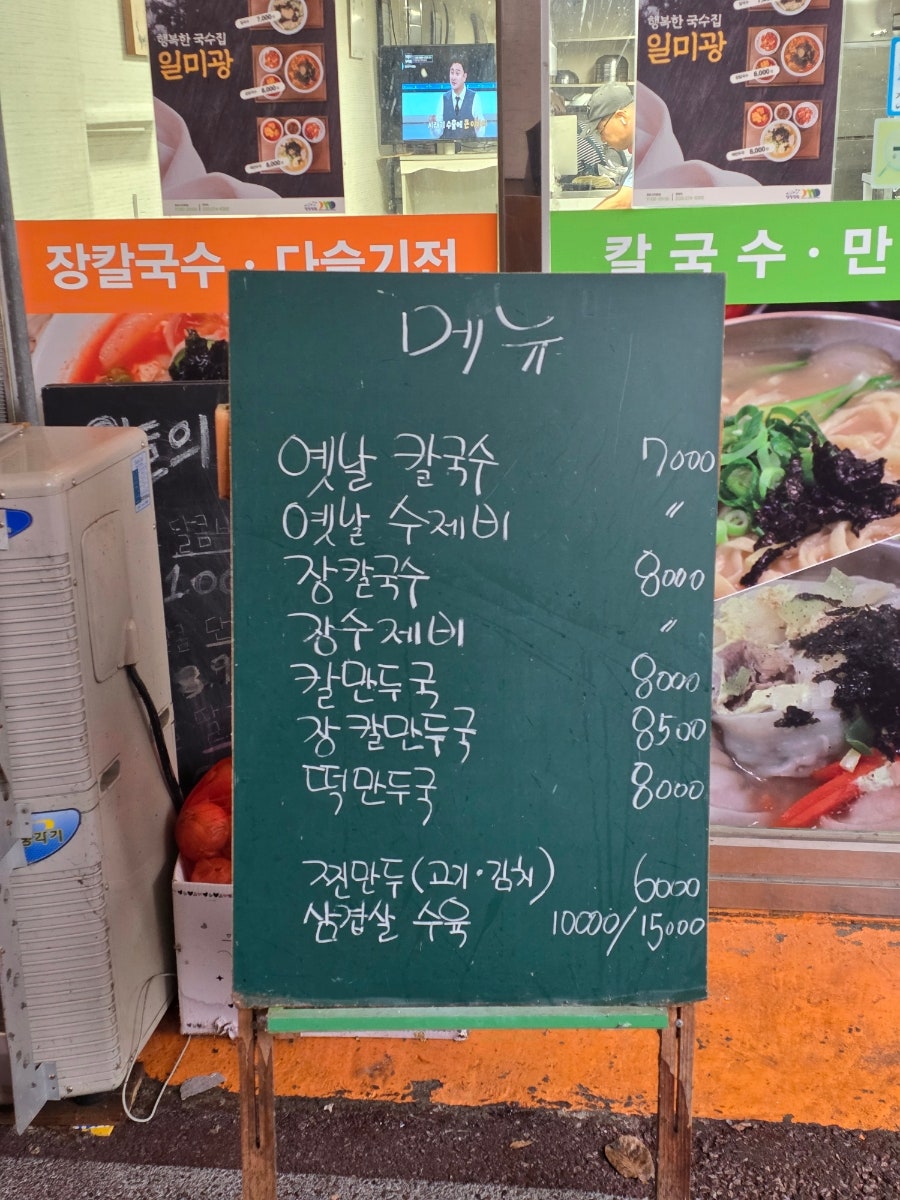 행복한 국수집
일미광
7,000원
8,000원
8,000원
행복한 국수집
일미광
8,000원
8,000원
장칼국수 · 다슬기전
칼국수 · 만
메뉴
옛날 칼국수 7000
옛날 수제비 〃
장칼국수 8000
장수제비 〃
칼만두국 8000
장칼만두국 8500
떡만두국 8000
찐만두(고기·김치) 6000
삼겹살 수육 10000/15000